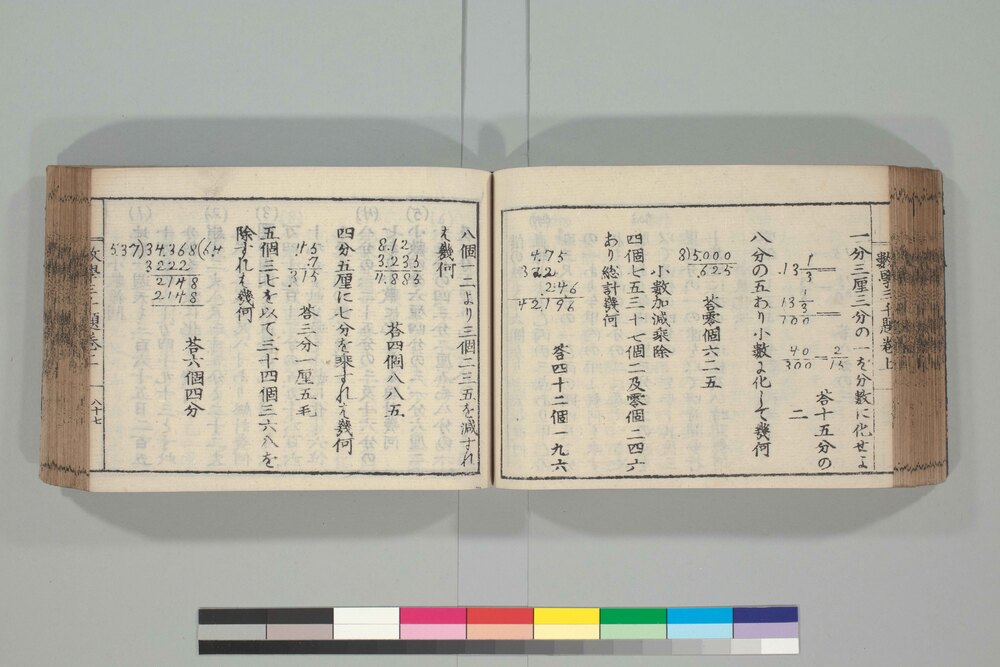 一分三厘三分の一を分数に化せよ
.13 1/3 =
13 1/3 / 100 =
40/300 = 2/15
荅十五分の
二
八分の五あり小數に化して幾何
8)5.000
.625
荅零個六二五
小數加減乘除
四個七五三十七個二及零個二四六
あり総計幾何
4.75
37.2
.246
42.196
荅四十二個一九六
八個一二より三個二三五を減ずれ
ば幾何
8.12
3.235
4.885
荅四個八八五
四分五厘に七分を乘ずれば幾何
.45
.7
.315
荅三分一厘五毛
五個三七を以て三十四個三六八を
除すれば幾何
5.37)34.368(6.4
3222
2148
2148
荅六個四分
八十七